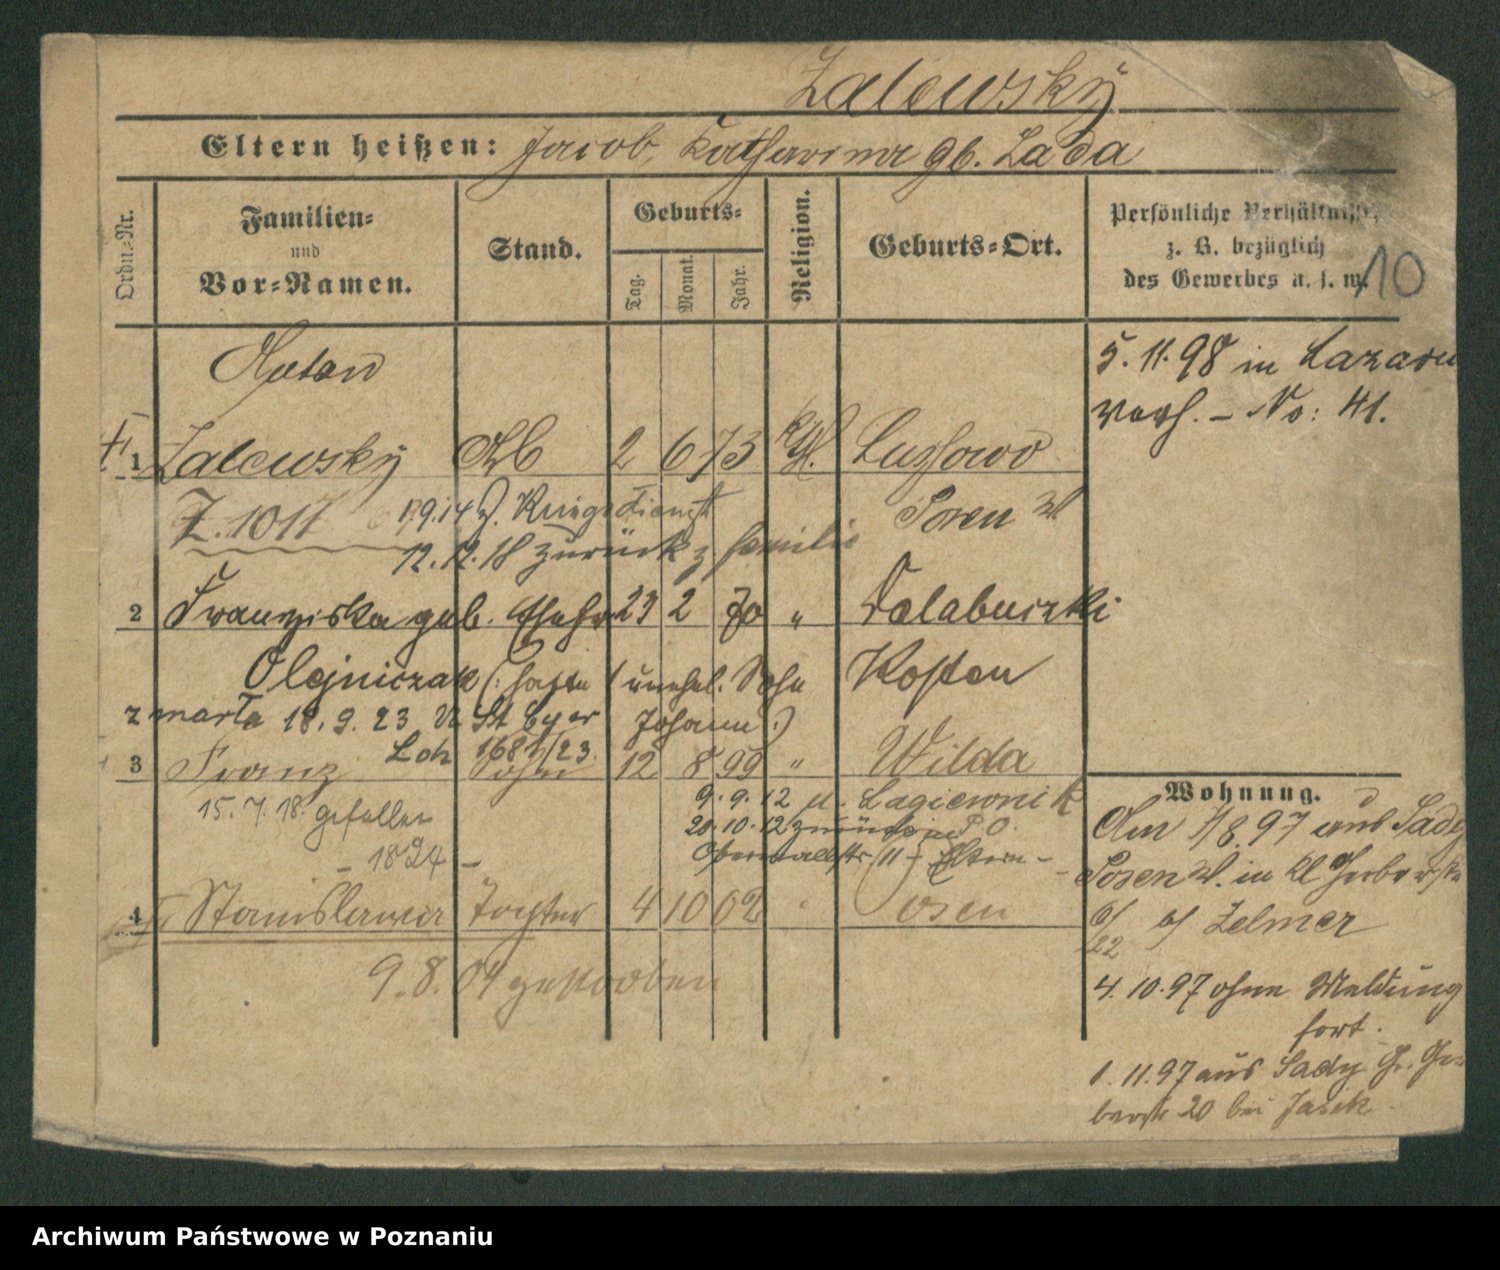 Zalewsky
Eltern heißen: Jacob, Katharina gb. Lada
Ordn.-Nr.
Familien- und Vor-Namen.
Stand.
Geburts-
Tag.
Monat.
Jahr.
Religion.
Geburts-Ort.
Persönliche Verhältnisse,
z. B. bezüglich
des Gewerbes u. s. w.
10
5.11.98 in Lazarus
verh. – No: 41.
1 Zalewsky Arb 2 6 73 kth. Lussowo
Z. 1017 Posen W
1.9.14 z. Kriegsdienst
12.12.18 zurück z. Familie
2 Franziska geb. Ehefr 23 2 70 "
Olejniczak (: hatte 1 unehel. Sohn Kosten
zmarła 18.9.23 Johann :)
1681/23
3 Franz Sohn 12 8 99 " Wilda
15.7.18. gefallen
– 1824 –
9.9.12 n. Lagiewnik
20.10.12 zurück P.O.
11 – Eltern –
4 Stanislawa Tochter 4 10 02 Posen
9.8.04 gestorben
Wohnung.
Am 7/8.97 aus Sady
Posen W. in kl Gerberstr
6/22 b/ Zelmer
4.10.97 ohne Meldung
fort.
1.11.97 aus Sady Gr. Ger-
berstr 20 bei Jasik
Archiwum Państwowe w Poznaniu